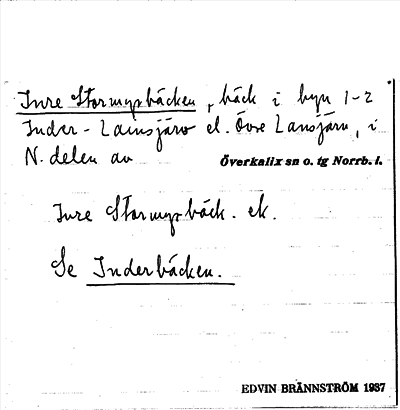 Inre Stormyrbäcken, bäck i byn 1-2
Inder-Lansjärv el. Övre Lansjärv, i
N. delen av Överkalix sn o. tg Norrb. l.
Inre Stormyrbäck. ek.
Se Inderbäcken.
EDVIN BRÄNNSTRÖM 1937